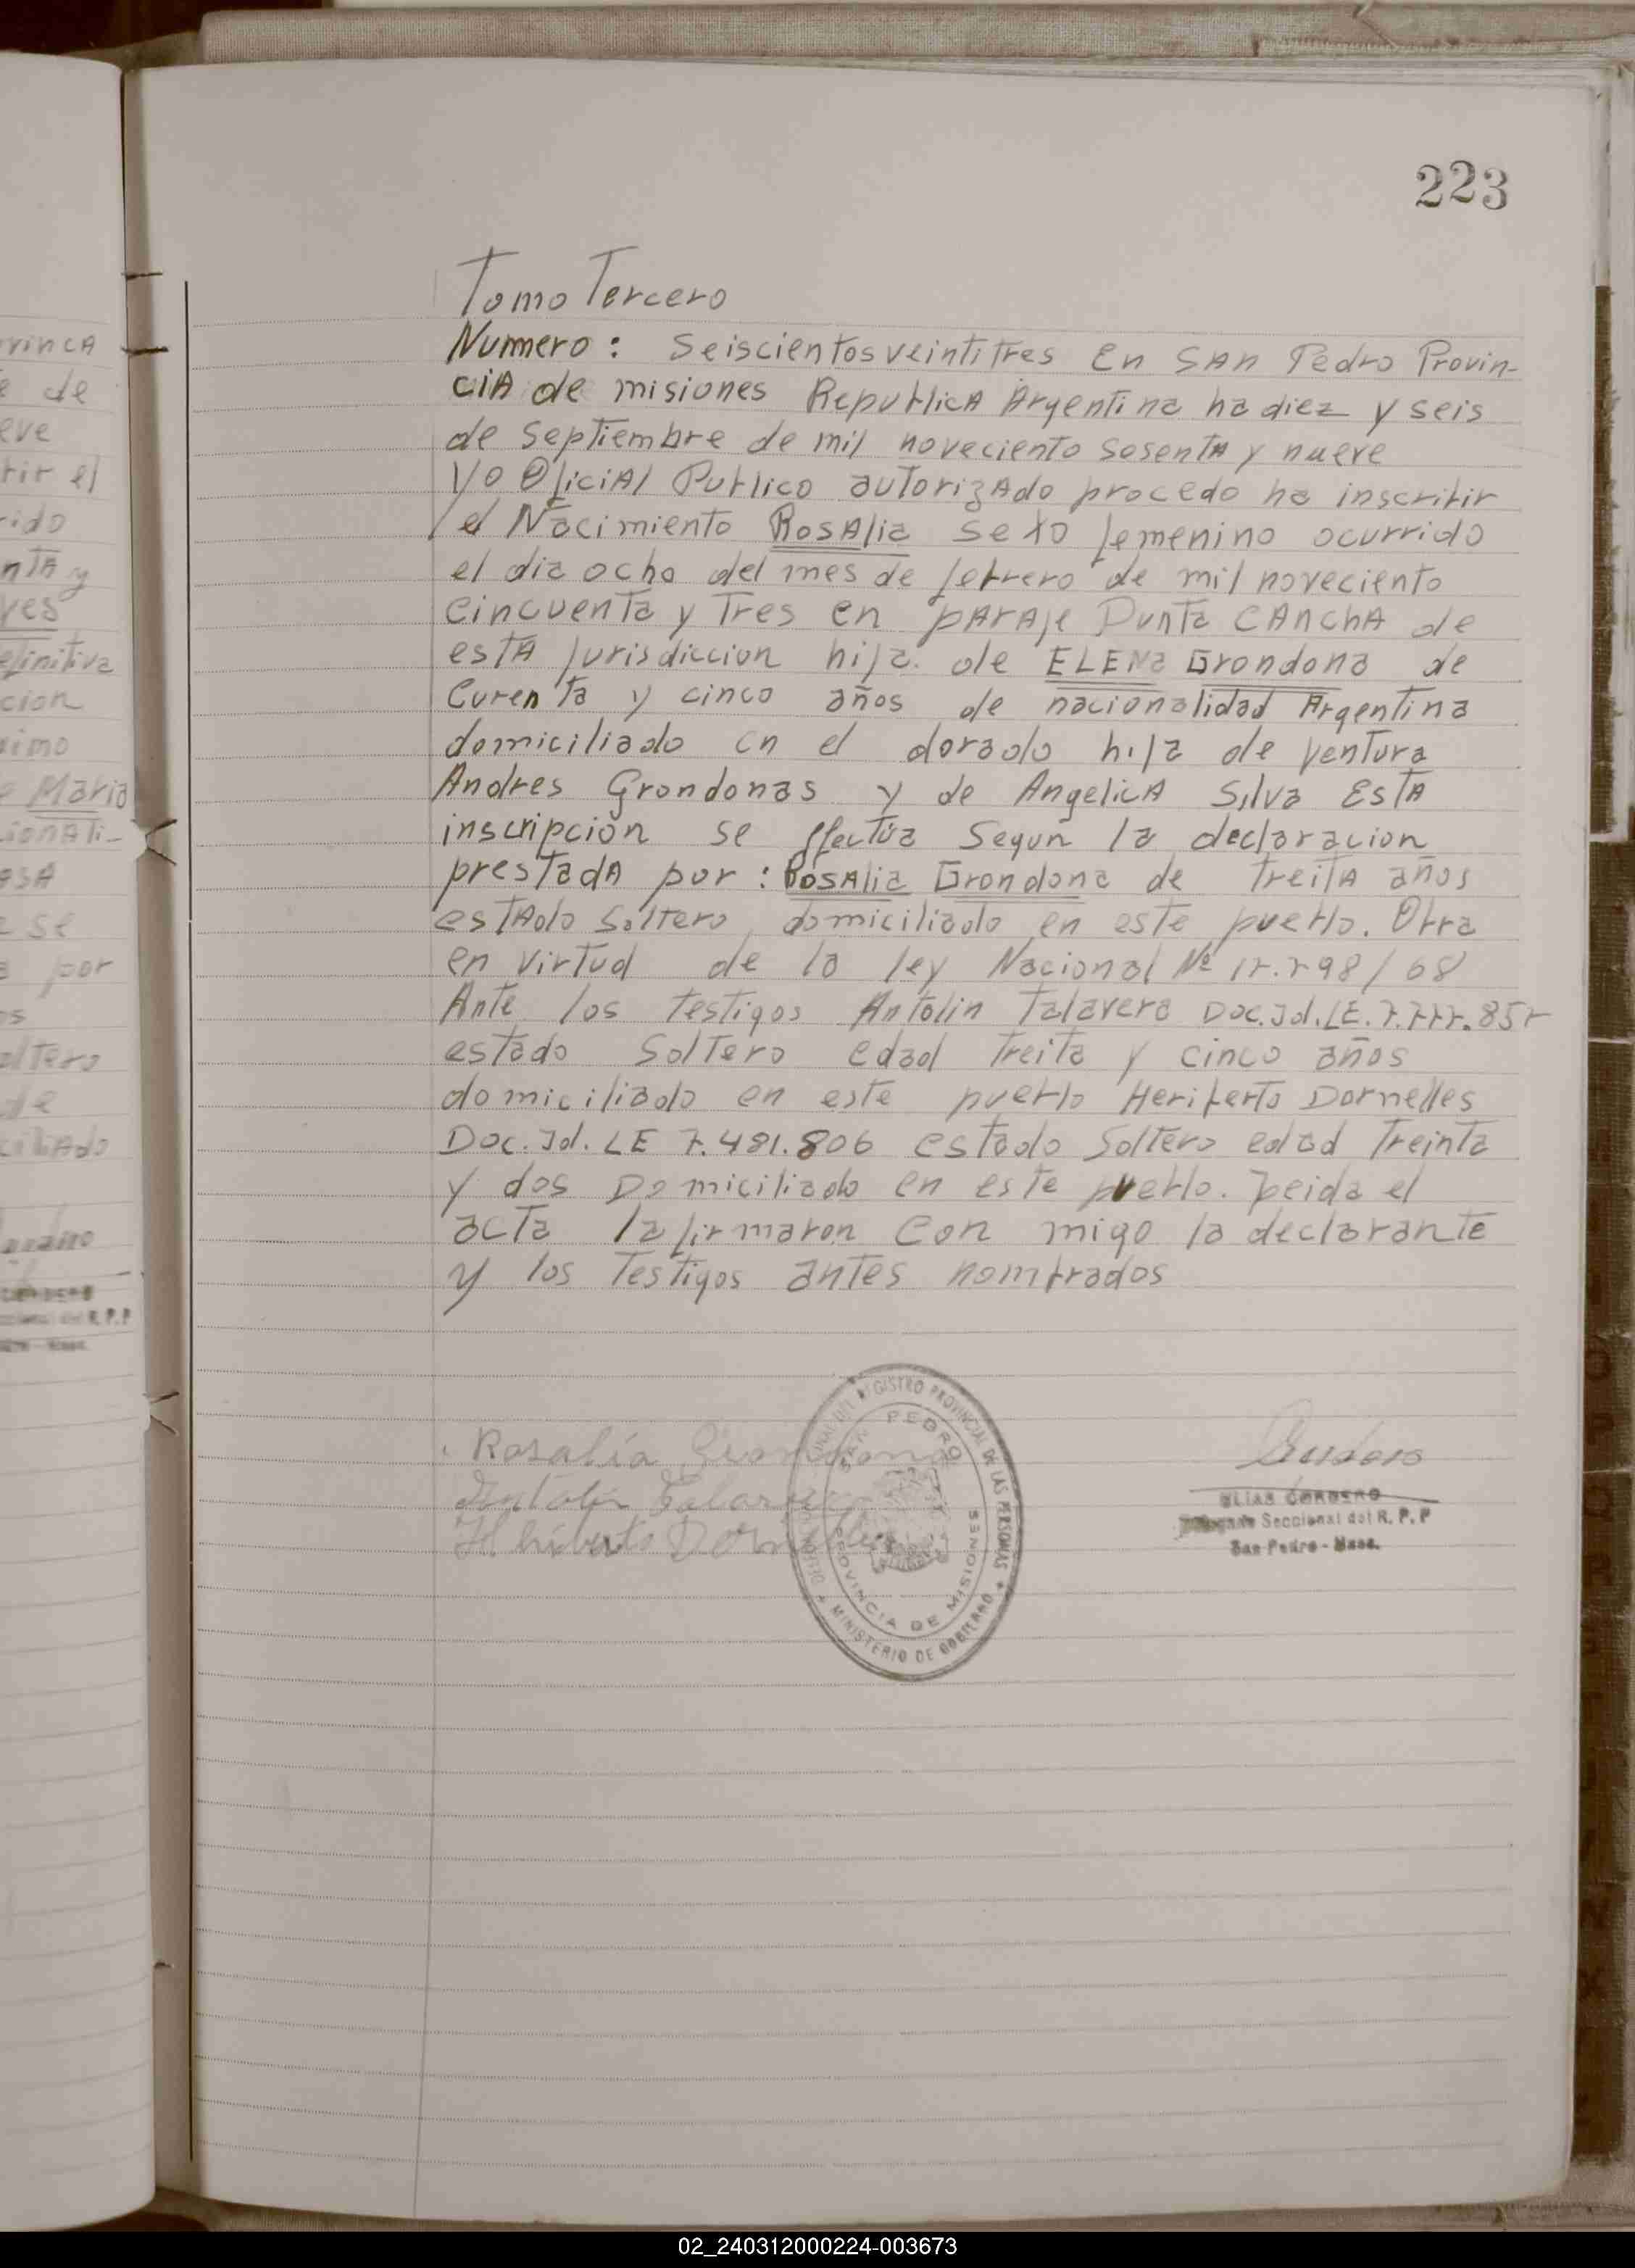 223
Tomo Tercero
Numero: Seiscientos veintitres En SAN Pedro Provin-
ciA de misiones RepublicA Argentina ha diez y seis
de Septiembre de mil noveciento sesentA y nueve
Yo OficiAl Publico autorizAdo procedo ha inscribir
el Nacimiento RosAlia sexo femenino ocurrido
el dia ocho del mes de febrero de mil noveciento
Cincuenta y Tres en pArAje Punta CAnchA de
estA Jurisdiccion hija de ELENa Grondona de
Curenta y cinco años de nacionalidad Argentina
domiciliado en el dorado hija de Ventura
Andres Grondonas y de AngelicA Silva EstA
inscripción se efectúa Segun la declaracion
prestadA por: RosAlia Grondona de TreitA años
estAdo Soltero domiciliado en este pueblo. Obra
en virtud de la ley Nacional Nº 98/68
Ante los testigos Antolin Talavera Doc. Id. LE.
estado Soltero edad treita y cinco años
domiciliado en este pueblo Heriberto Dornelles
Doc. Id. LE 7.481.806 estado Soltero edad Treinta
y dos Domiciliado en este pueblo. Leida el
acta la firmaron con migo la declarante
y los Testigos antes nombrados
Rosalía Grondona
Antolin Talavera
Heriberto Dornelles
ELIAS CORDERO
Seccional del R. P. P
San Pedro - Mnes.
REGISTRO PROVINCIAL DE LAS PERSONAS
MINISTERIO DE GOBIERNO
SAN PEDRO
PROVINCIA DE MISIONES
vincA
e de
eve
bir el
rido
ntA y
yes
efinitiva
cion
ximo
e Maria
cionAli-
a se
a por
os
oltero
de
ciliAdo
R. P. P
02_240312000224-003673